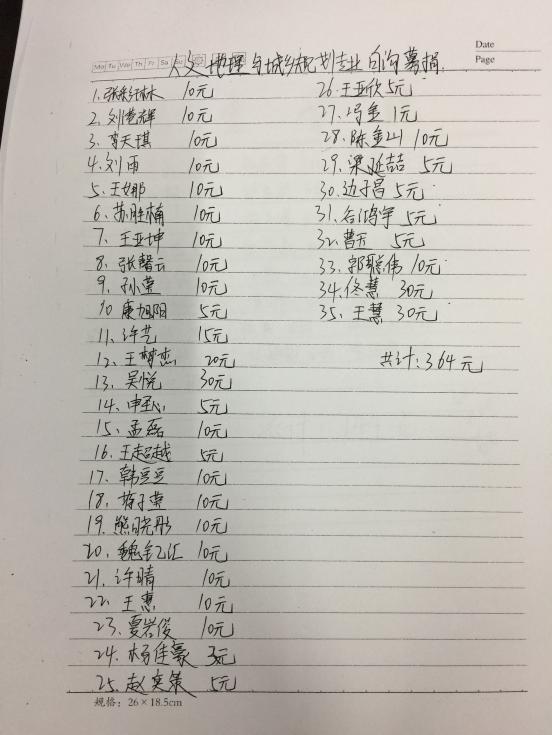 Date
Page
Mo Tu We Th Fr Sa Su
人文地理与城乡规划专业 募捐
1. 张 林 10元
2. 刘 辉 10元
3. 李天琪 10元
4. 刘雨 10元
5. 王娜 10元
6. 苏胜楠 10元
7. 王亚坤 10元
8. 张馨云 10元
9. 孙莹 10元
10 康旭阳 5元
11. 许艺 15元
12. 王梦恋 20元
13. 吴悦 30元
14. 申 5元
15. 孟磊 10元
16. 王超越 5元
17. 韩豆豆 10元
18. 子莹 10元
19. 熊晓彤 10元
20. 魏钇汇 10元
21. 许晴 10元
22. 王惠 10元
23. 夏岩俊 10元
24. 杨佳豪 3元
25. 赵奕策 5元
26. 王亚欣 5元
27. 冯金 1元
28. 陈金山 10元
29. 梁延喆 5元
30. 边子昌 5元
31. 谷鸿宇 5元
32. 曹 5元
33. 郭聪伟 10元
34. 佟慧 30元
35. 王慧 30元
共计:364元
规格:26×18.5cm